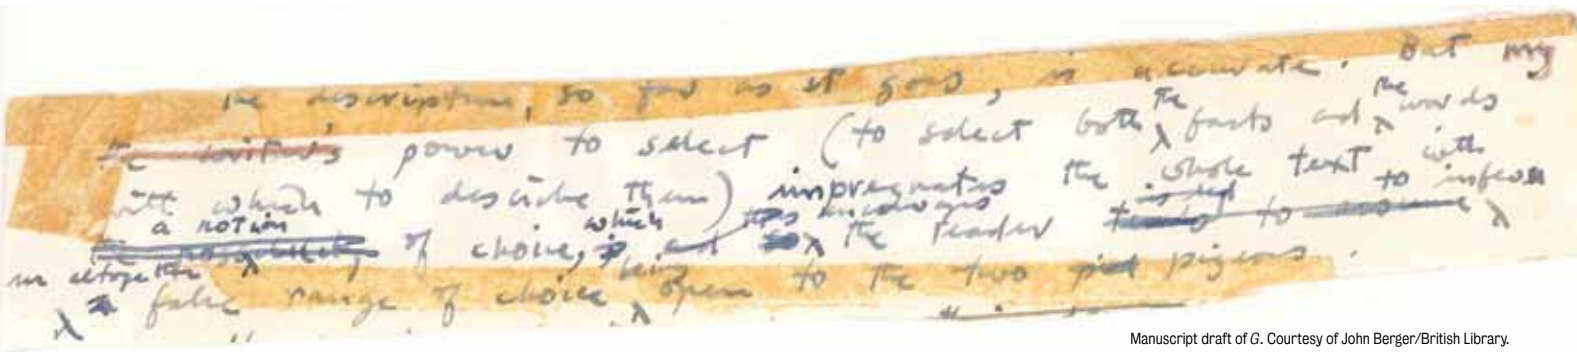 The description, so far as it goes, is accurate. But my
the writer's power to select (to select both the facts and the words
with which to describe them) impregnates the whole text with
a notion of choice, which encourages the reader to infer
an altogether false range of choice being open to the two pigeons.
Manuscript draft of G. Courtesy of John Berger/British Library.